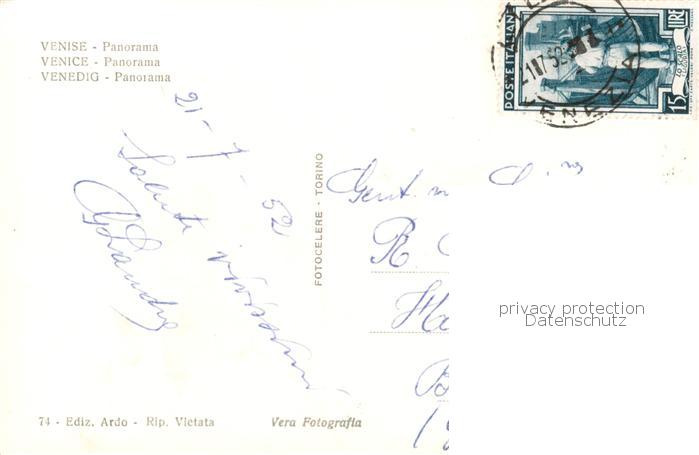 VENISE - Panorama
VENICE - Panorama
VENEDIG - Panorama
21-7-52
Saluti vivissimi
FOTOCELERE - TORINO
POSTE ITALIANE
LIRE 15
21 7 52
VENEZIA
Gent.
R
privacy protection
Datenschutz
74 - Ediz. Ardo - Rip. Vietata
Vera Fotografia